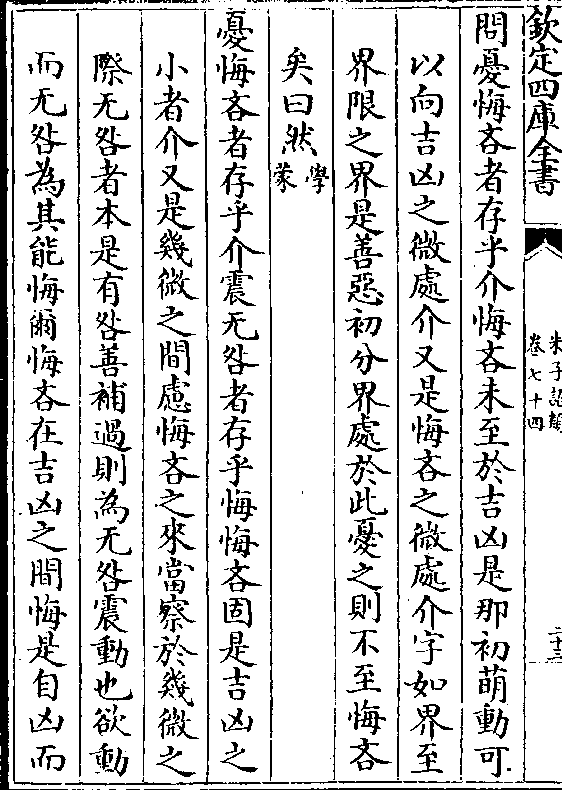 欽定四庫全書
朱子語類
卷七十四
二十三
問憂悔吝者存乎介悔吝未至於吉凶是那初萌動可
以向吉凶之微處介又是悔吝之微處介字如界至
界限之界是善惡初分界處於此憂之則不至悔吝
矣曰然學蒙
憂悔吝者存乎介震无咎者存乎悔悔吝固是吉凶之
小者介又是幾微之間慮悔吝之來當察於幾微之
際无咎者本是有咎善補過則為无咎震動也欲動
而无咎為其能悔爾悔吝在吉凶之間悔是自凶而